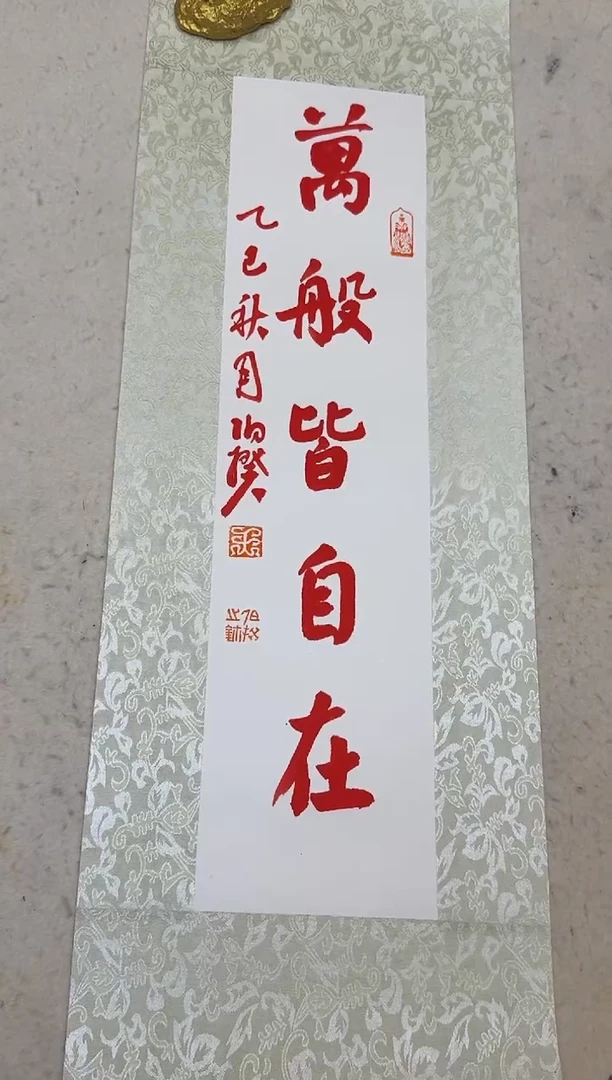 萬般皆自在
乙巳秋月